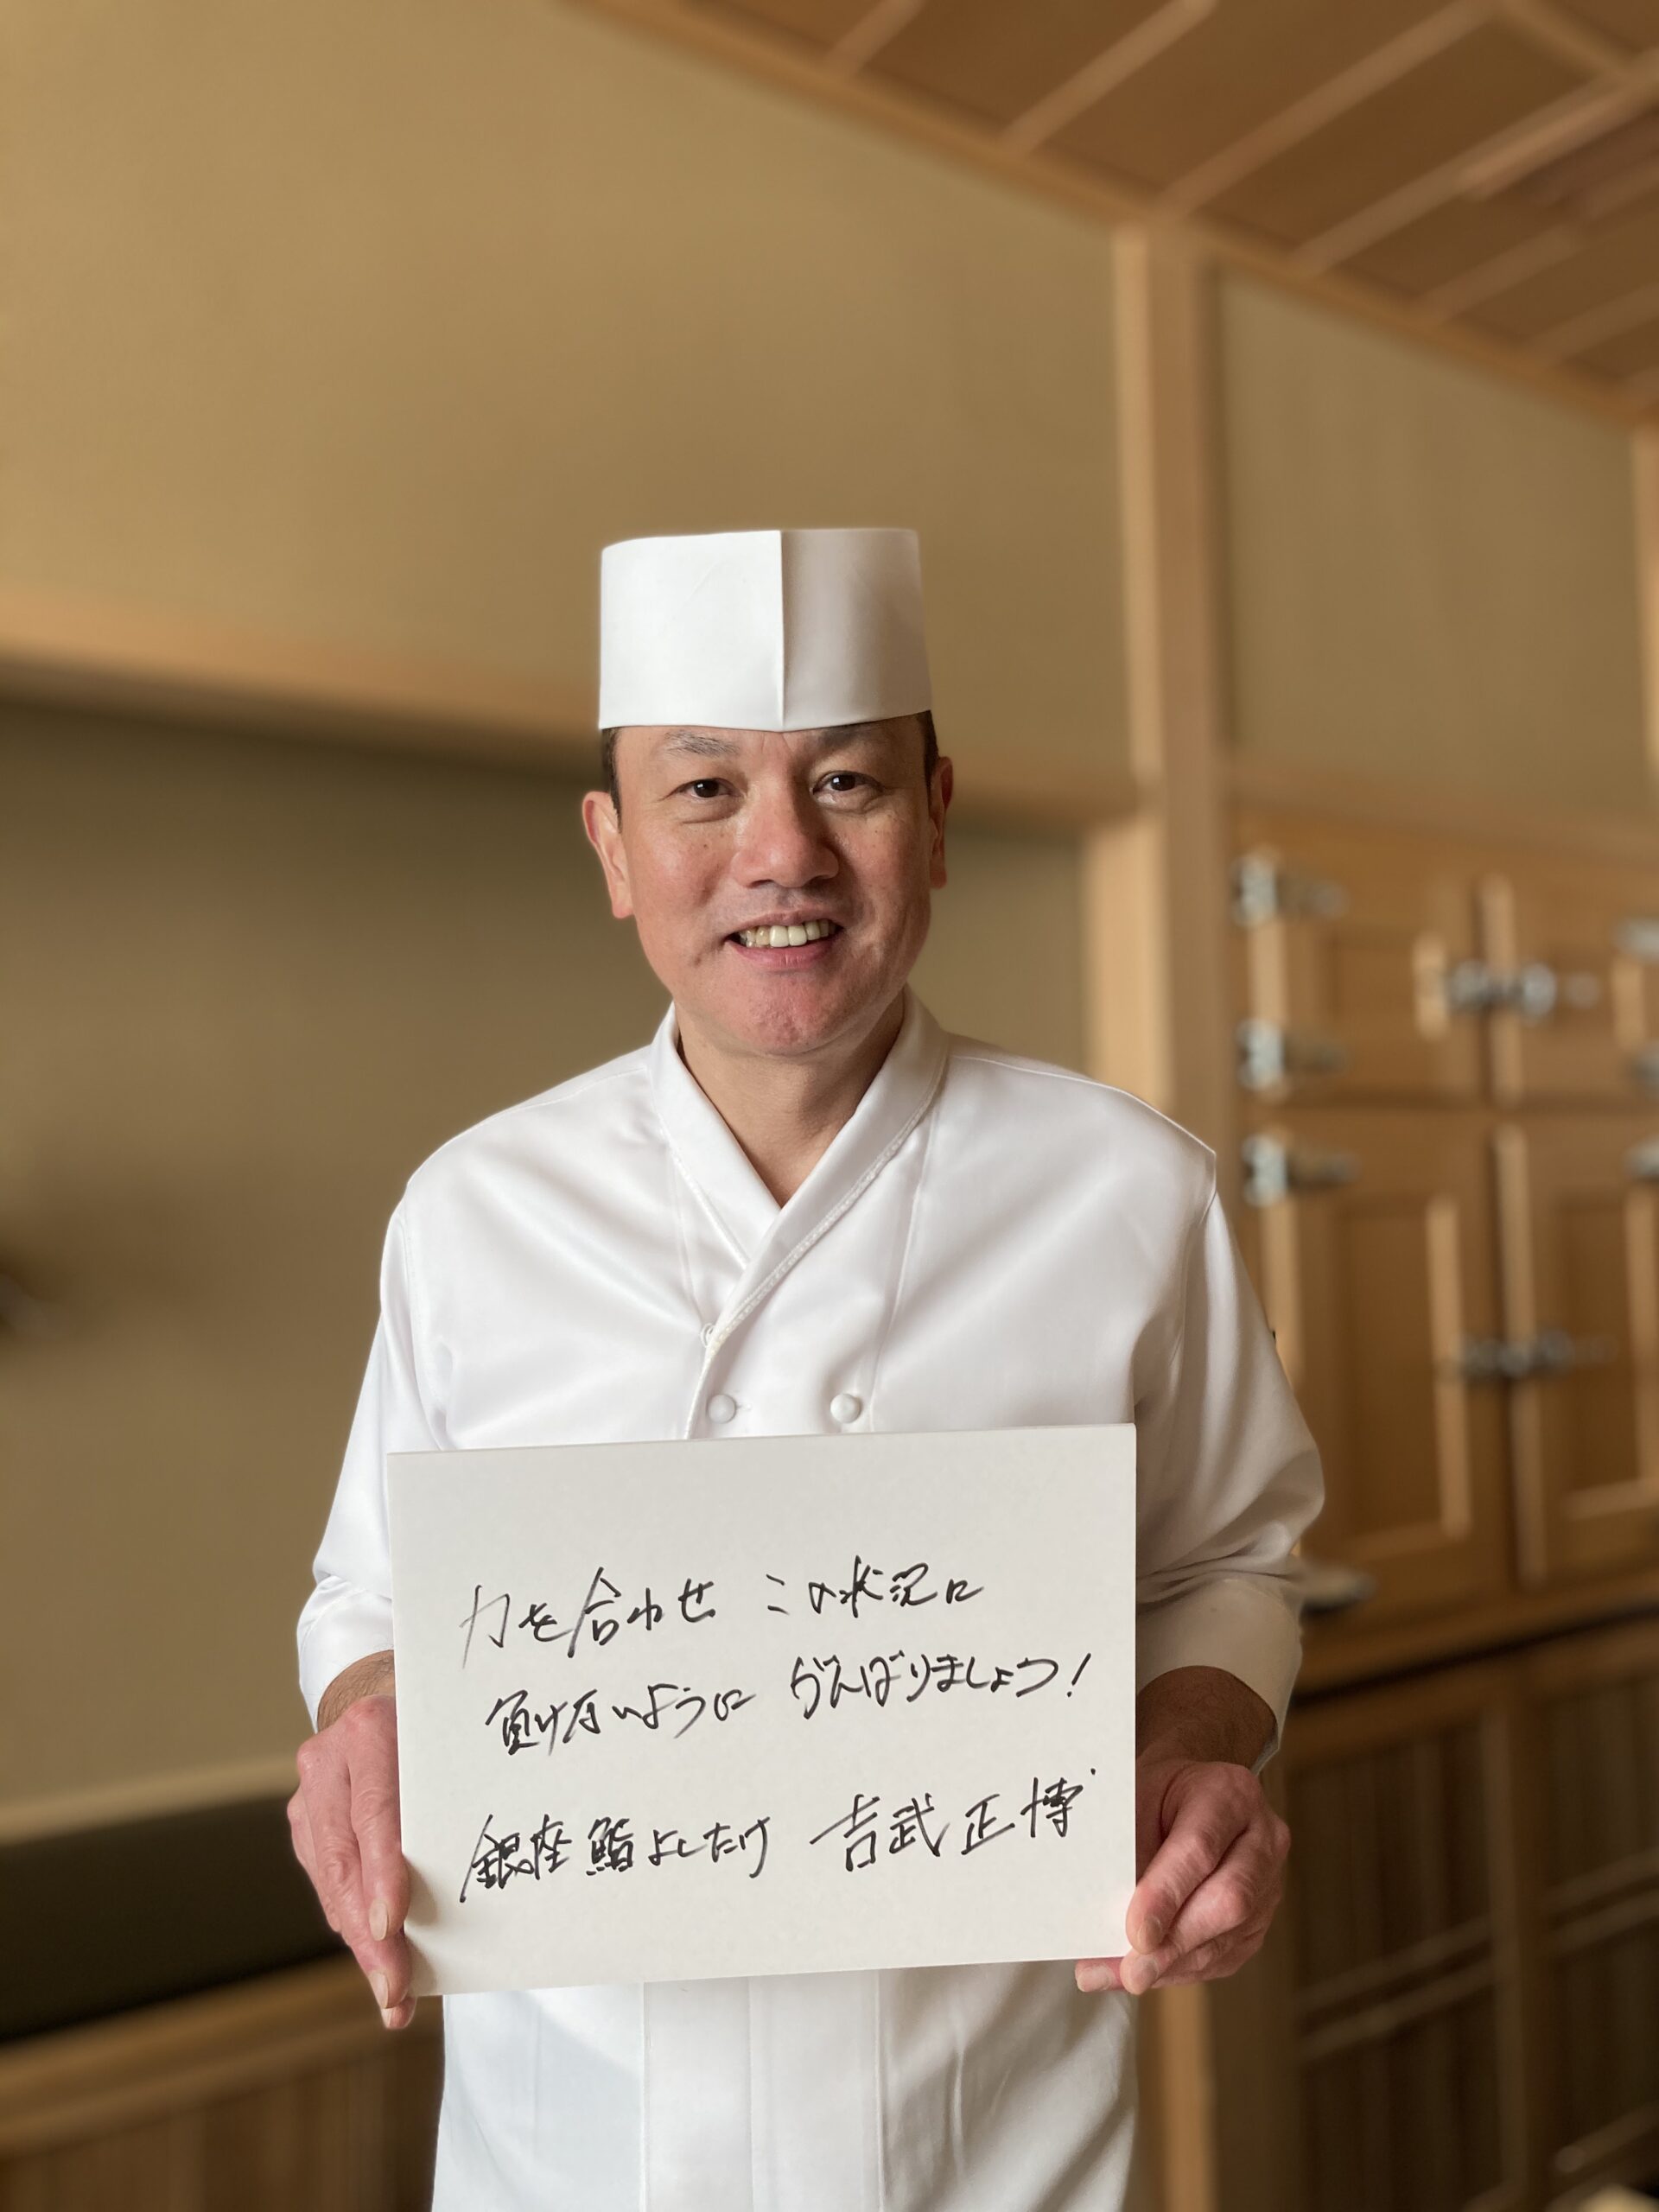 力を合わせ この状況に
負けないように がんばりましょう!
銀座鮨よしたけ 吉武正博